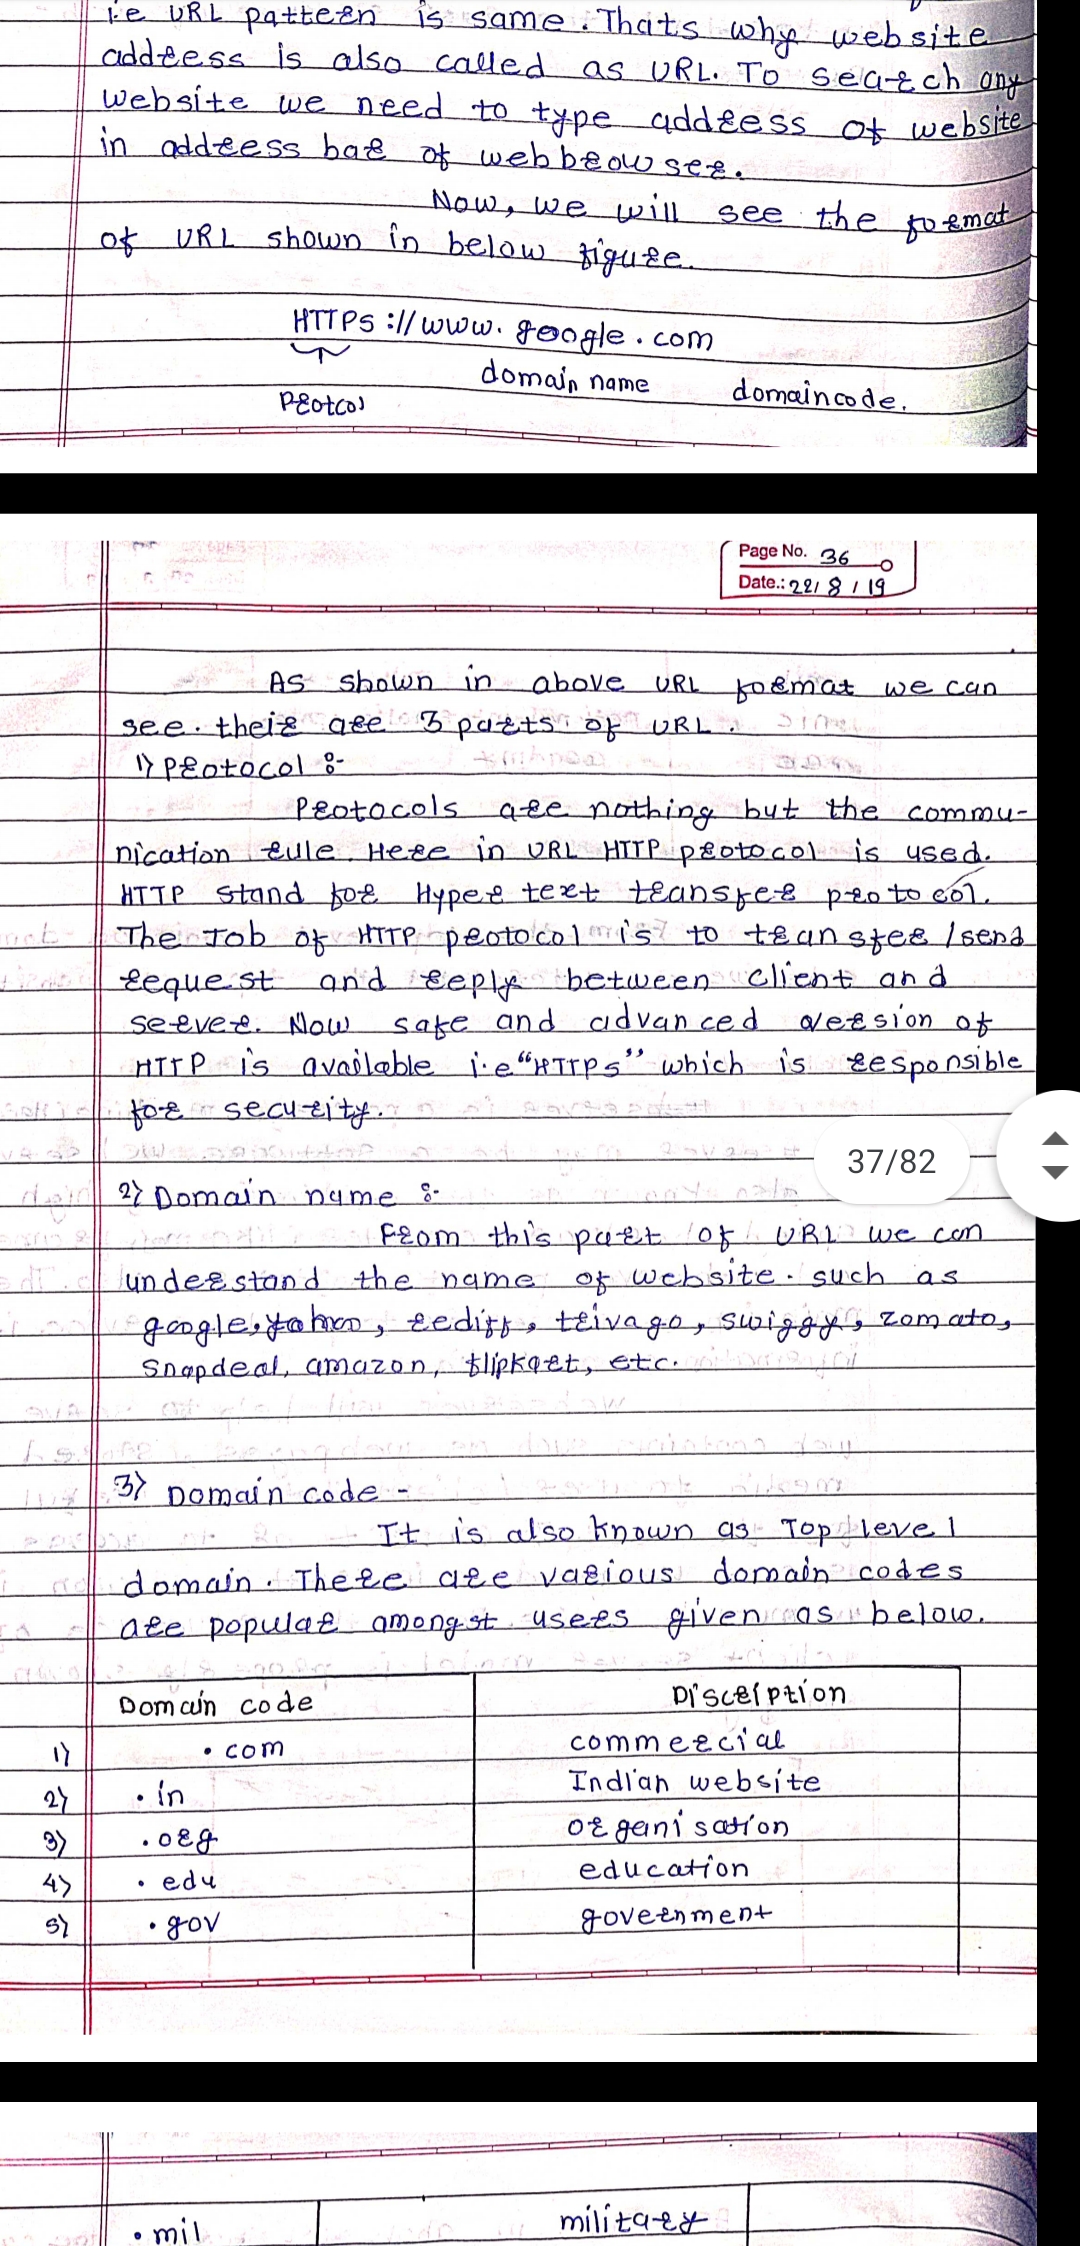 i.e URL pattern is same. Thats why website
address is also called as URL. To search any
website we need to type address of website
in address bar of web browser.
Now, we will see the format
of URL shown in below figure.
HTTPS://www.google.com
domain name domain code.
Protcol
Page No. 36
Date.: 22/8/19
As shown in above URL format we can
see. their are 3 parts of URL.
1) Protocol :-
Protocols are nothing but the commu-
nication rule. Here in URL HTTP protocol is used.
HTTP stand for Hyper text transfer protocol.
The Job of HTTP protocol is to transfer/send
request and reply between client and
server. Now safe and advanced version of
HTTP is available i.e "HTTPs" which is responsible
for security.
37/82
2) Domain name :-
From this part of URL we can
understand the name of website. such as
google, yahoo, rediff, trivago, swiggy, zomato,
snapdeal, amazon, flipkart, etc.
3) Domain code -
It is also known as Top level
domain. There are various domain codes
are popular amongst users given as below.
Domain code Discription
1) .com commercial
2) .in Indian website
3) .org organisation
4) .edu education
5) .gov government
.mil military